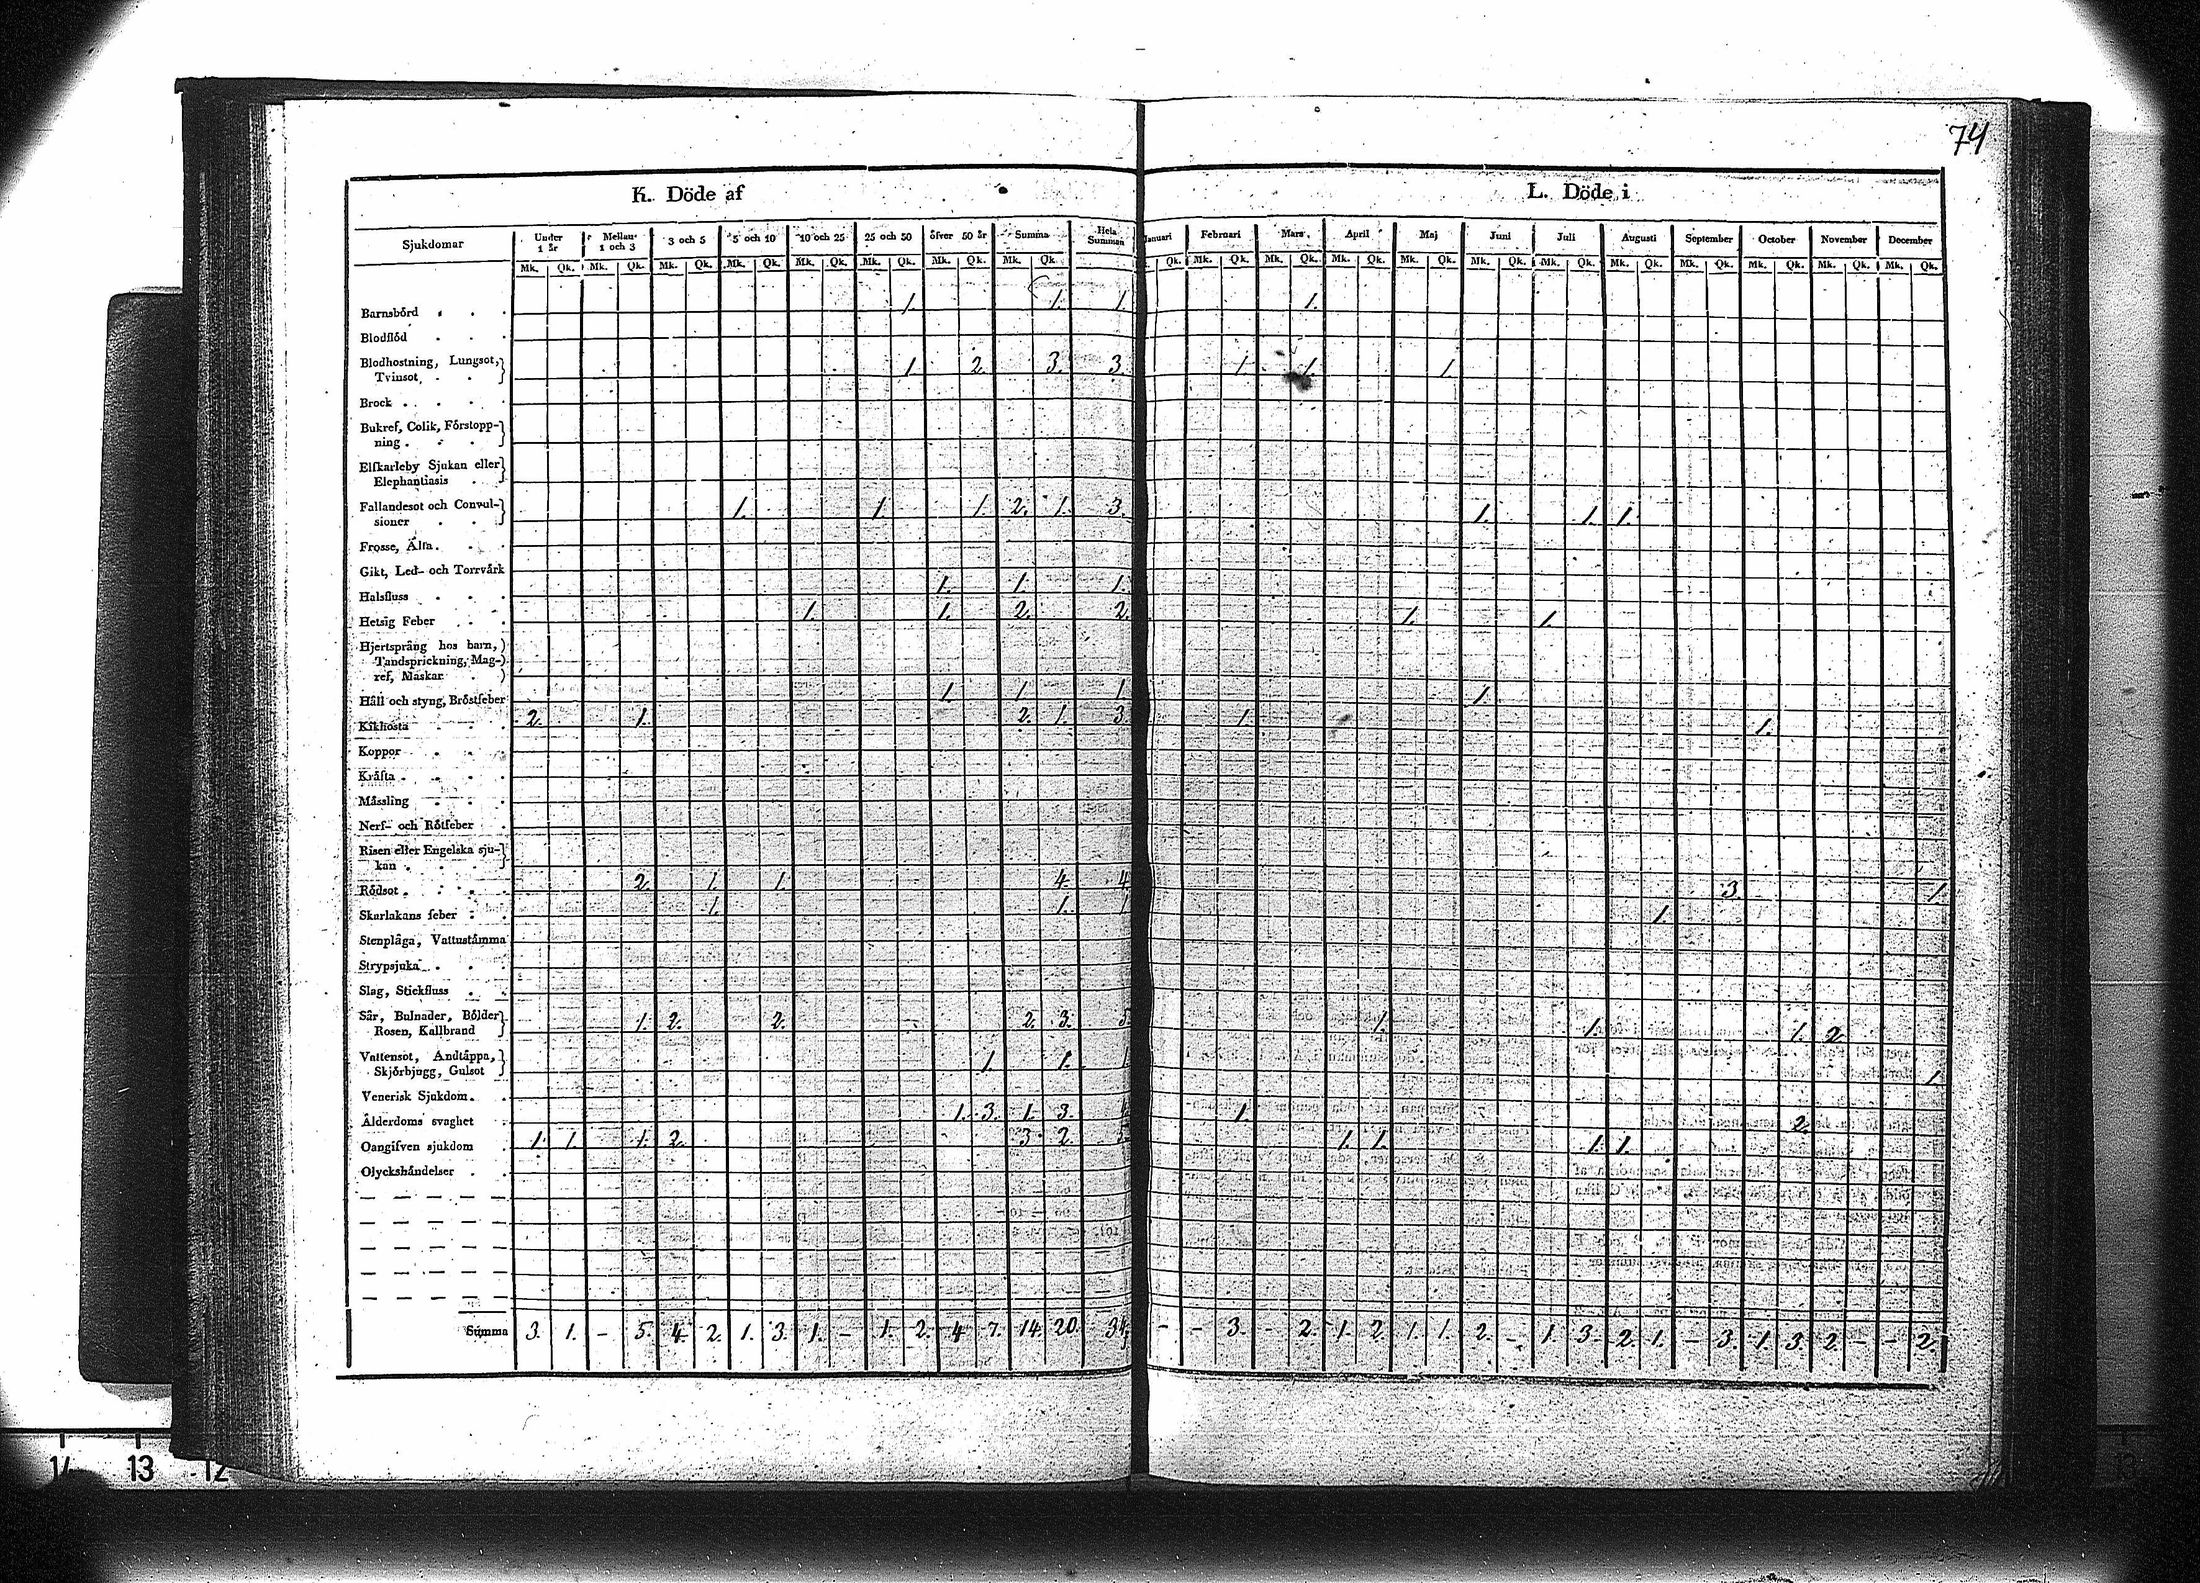 74
K. Döde af
L. Döde i
Sjukdomar Under 1 år Mellan 1 och 3 3 och 5 5 och 10 10 och 25 25 och 50 öfver 50 år Summa Hela Summan Januari Februari Mars April Maj Juni Juli Augusti September October November December
Mk. Qk. Mk. Qk. Mk. Qk. Mk. Qk. Mk. Qk. Mk. Qk. Mk. Qk. Mk. Qk. Qk. Mk. Qk. Mk. Qk. Mk. Qk. Mk. Qk. Mk. Qk. Mk. Qk. Mk. Qk. Mk. Qk. Mk. Qk. Mk. Qk. Mk. Qk.
Barnsbörd 1. 1. 1. 1.
Blodflöd
Blodhostning, Lungsot,
Tvinsot 1. 2. 3. 3. 1. 1. 1.
Brock
Bukref, Colik, Förstopp-
ning
Elfkarleby Sjukan eller
Elephantiasis
Fallandesot och Convul-
sioner 1. 1. 1. 2. 1. 3. 1. 1. 1.
Frosse, Älta
Gikt, Led- och Torrvärk
Halsfluss 1. 1. 1.
Hetsig Feber 1. 1. 2. 2. 1. 1.
Hjertsprång hos barn,
Tandsprickning, Mag-
ref, Maskar
Håll och styng, Bröstfeber 1. 1. 1 1.
Kikhosta 2. 1. 2. 1. 3 1. 1.
Koppor
Kräfta
Mässling
Nerf- och Rötfeber
Risen eller Engelska sju-
kan
Rödsot 2. 1. 1. 4. 4 3. 1.
Skarlakans feber 1. 1. 1 1.
Stenplåga, Vattustämma
Strypsjuka
Slag, Stickfluss
Sår, Bulnader, Bölder
Rosen, Kallbrand 1. 2. 2. 2. 3. 5 1. 1. 1. 2.
Vattensot, Andtäppa,
Skjörbjugg, Gulsot 1. 1. 1 1.
Venerisk Sjukdom
Ålderdoms svaghet 1. 3. 1. 3. 4 1. 2.
Oangifven sjukdom 1. 1. 1. 2. 3. 2. 5. 1. 1. 1. 1.
Olyckshändelser
Summa 3. 1. - 5. 4. 2. 1. 3. 1. - 1. 2. 4. 7. 14. 20. 34. - - 3. - 2. 1. 2. 1. 1. 2. - 1. 3. 2. 1. - 3. 1. 3. 2. - - 2.
14 13 12
13